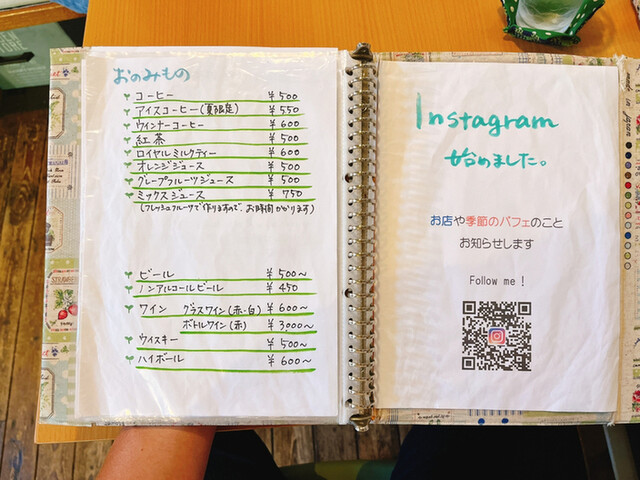 おのみもの
コーヒー ¥500
アイスコーヒー(夏限定) ¥550
ウィンナーコーヒー ¥600
紅茶 ¥500
ロイヤルミルクティー ¥600
オレンジジュース ¥500
グレープフルーツジュース ¥500
ミックスジュース ¥750
(フレッシュフルーツで作りますので、お時間かかります)
ビール ¥500〜
ノンアルコールビール ¥450
ワイン グラスワイン(赤・白) ¥600〜
ボトルワイン(赤) ¥3,000〜
ウイスキー ¥500〜
ハイボール ¥600〜
Instagram
始めました。
お店や季節のパフェのこと
お知らせします
Follow me!